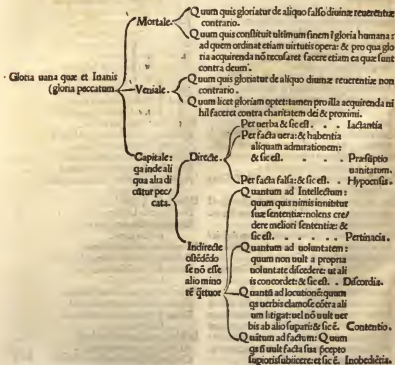 Quum quis gloriatur de aliquo falso diuinæ reuerentiæ
Mortale.
contrario.
Quum quis constituit ultimum finem ĩ gloria humana:
ad quem ordinat etiam uirtutis opera: & pro qua glo
ria acquirenda nõ recusaret facere etiam ea quæ sunt
contra deum.
Gloria uana quæ et Inanis
(gloria peccatum
Veniale.
Quum quis gloriatur de aliquo diuinæ reuerentiæ non
contrario.
Quum licet gloriam optet: tamen pro illa acquirenda ni
hil faceret contra charitatem dei & proximi.
Capitale:
ga inde ali
qua alia di
cũtur pec/
cata.
Directe
Per uerba & sic est. . . . Iactantia
Per facta uera: & habentia
aliquam admirationem:
& sic est. . . . Præsũptio
uanitatum.
Per facta falsa: & sic est. . . Hypocrisis.
Indirecte
ostẽdẽdo
se nõ esse
alio mino
rẽ q̃ttuor
Quantum ad Intellectum:
quum quis nimis innititur
suæ sententiæ: nolens cre/
dere meliori sententiæ: &
sic est. . . . . . Pertinacia.
Quantum ad uoluntatem:
quum non uult a propria
uoluntate discedere: ut ali
is concordet: & sic est. . . Discordia.
Quantũ ad locutionẽ: quum
qs uerbis clamose cõtra ali
um litigat: uel nõ uult uer
bis ab alio supari: & sic ẽ. Contentio.
Quãtum ad factum: Quum
qs ñ uult facta sua p̃cepto
supioris subiicere: et sic ẽ. Inobediẽtia.